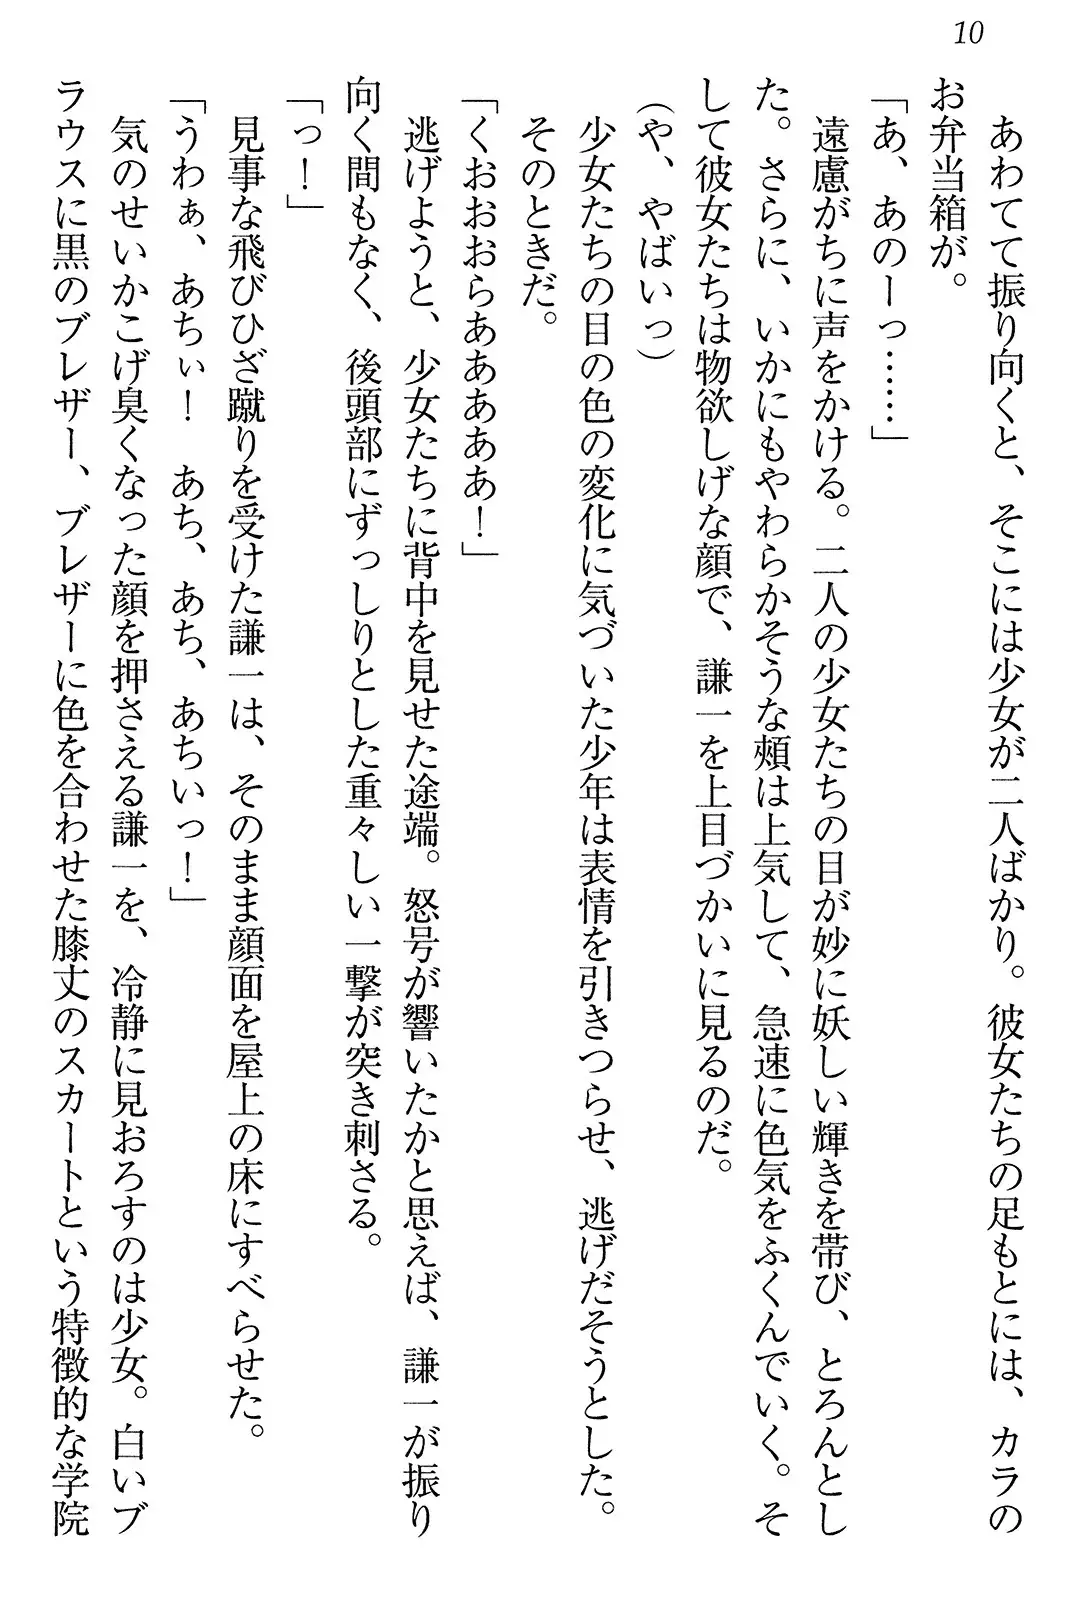 10
　あわてて振り向くと、そこには少女が二人ばかり。彼女たちの足もとには、カラの
お弁当箱が。
「あ、あのーっ……」
　遠慮がちに声をかける。二人の少女たちの目が妙に妖しい輝きを帯び、とろんとし
た。さらに、いかにもやわらかそうな頰は上気して、急速に色気をふくんでいく。そ
して彼女たちは物欲しげな顔で、謙一を上目づかいに見るのだ。
(や、やばいっ)
　少女たちの目の色の変化に気づいた少年は表情を引きつらせ、逃げだそうとした。
　そのときだ。
「くおおおらああああ！」
　逃げようと、少女たちに背中を見せた途端。怒号が響いたかと思えば、謙一が振り
向く間もなく、後頭部にずっしりとした重々しい一撃が突き刺さる。
「っ！」
　見事な飛びひざ蹴りを受けた謙一は、そのまま顔面を屋上の床にすべらせた。
「うわぁ、あちぃ！　あち、あち、あちいっ！」
　気のせいかこげ臭くなった顔を押さえる謙一を、冷静に見おろすのは少女。白いブ
ラウスに黒のブレザー、ブレザーに色を合わせた膝丈のスカートという特徴的な学院